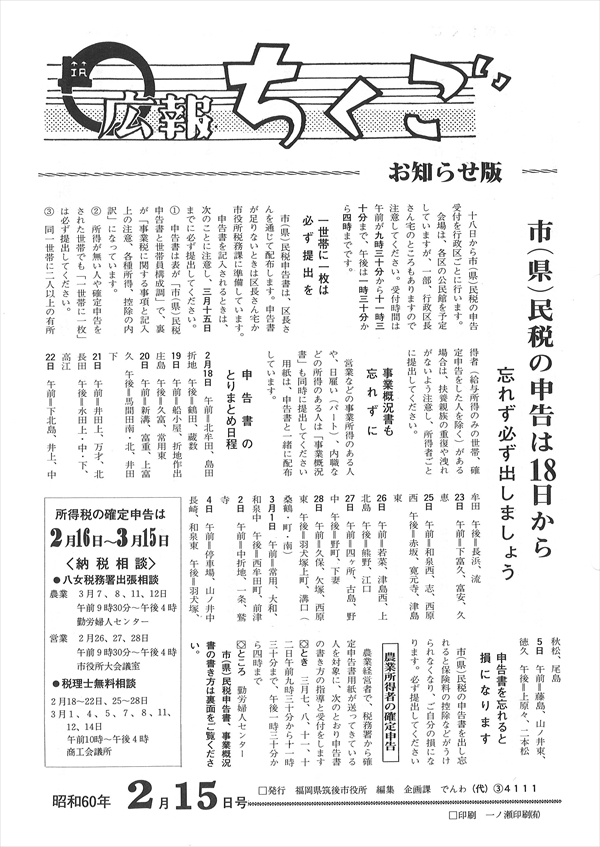 広報ちくご
お知らせ版
市(県)民税の申告は18日から
忘れず必ず出しましょう
十八日から市(県)民税の申告
受付を行政区ごとに行います。
会場は、各区の公民館を予定
していますが、一部、行政区長
さん宅のところもありますので
注意してください。受付時間は
午前が九時三十分から十一時三
十分まで、午後は一時三十分か
ら四時までです。
一世帯に一枚は
必ず提出を
市(県)民税申告書は、区長さ
んを通じて配布します。申告書
が足りないときは区長さん宅か
市役所税務課に準備しています。
申告書を記入されるときは、
次のことに注意し、三月十五日
までに必ず提出してください。
① 申告書は表が「市(県)民税
申告書と世帯員構成調」で、裏
が「事業税に関する事項と記入
上の注意、各種所得、控除の内
訳」になっています。
② 所得が無い人や確定申告を
された世帯でも「一世帯に一枚」
は必ず提出してください。
③ 同一世帯に二人以上の有所
得者(給与所得のみの世帯、確
定申告をした人を除く)がある
場合は、扶養親族の重複や洩れ
がないよう注意し、所得者ごと
に提出してください。
事業概況書も
忘れずに
営業などの事業所得のある人
や、日雇い(パート)、内職な
どの所得のある人は「事業概況
書」も同時に提出してください
用紙は、申告書と一緒に配布
しています。
申告書の
とりまとめ日程
2月18日 午前=北牟田、島田
折地 午後=鶴田、蔵数
19日 午前=船小屋、折地作出
庄島 午後=久富、常用東
20日 午前=新溝、富重、上富
久 午後=馬間田南・北、井田
下
21日 午前=井田上、万才、北
長田 午後=水田上・中・下、
高江
22日 午前=下北島、井上、中
牟田 午後=長浜、流
23日 午前=下富久、富安、久
恵
25日 午前=和泉西、志、西原
西 午後=赤坂、寛元寺、津島
東
26日 午前=若菜、津島西、上
北島 午後=熊野、江口
27日 午前=四ヶ所、古島、野
中 午後=野町、下妻
28日 午前=久保、欠塚、西原
東 午後=羽犬塚上町、溝口(
桑鶴・町・南)
3月1日 午前=常用、大和、
和泉中 午後=西牟田町、前津
2日 午前=中折地、一条、鷲
寺
4日 午前=停車場、山ノ井中
長崎、和泉東 午後=羽犬塚、
秋松、尾島
5日 午前=藤島、山ノ井東、
徳久 午後=上原々、二本松
申告書を忘れると
損になります
市(県)民税の申告書を出し忘
れると保険料の控除などがうけ
られなくなり、ご自分の損にな
ります。必ず提出してください
農業所得者の確定申告
農業経営者で、税務署から確
定申告書用紙が送ってきている
人を対象に、次のとおり申告書
の書き方の指導と受付をします
◎とき 三月七、八、十一、十
二日午前九時三十分から十一時
三十分まで、午後一時三十分か
ら四時まで
◎ところ 勤労婦人センター
市(県)民税申告書、事業概況
書の書き方は裏面をご覧くださ
い。
所得税の確定申告は
2月16日~3月15日
<納税相談>
●八女税務署出張相談
農業 3月7、8、11、12日
午前9時30分~午後4時
勤労婦人センター
営業 2月26、27、28日
午前9時30分~午後4時
市役所大会議室
●税理士無料相談
2月18~22、25~28日
3月1、4、5、7、8、11、
12、14日
午前10時~午後4時
商工会議所
昭和60年 2月15日号
□発行 福岡県筑後市役所 編集 企画課 でんわ(代)③4111
□印刷 一ノ瀬印刷㈲